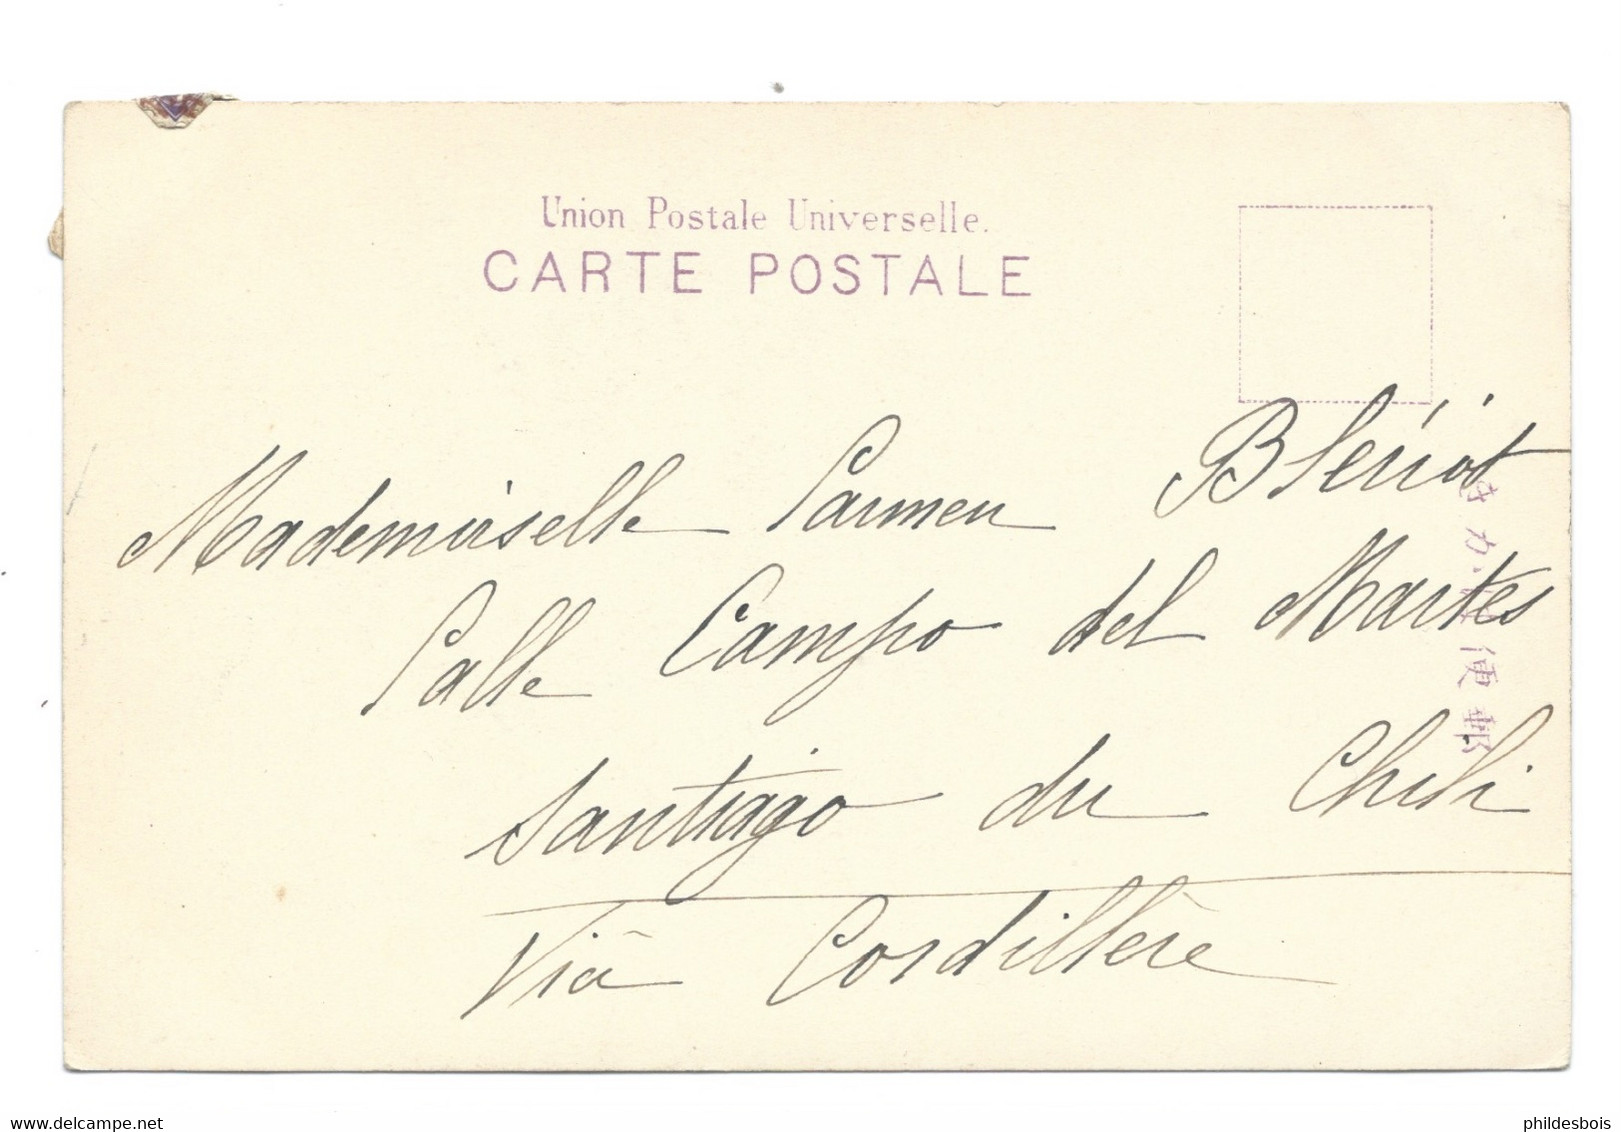 Union Postale Universelle.
CARTE POSTALE
Mademoiselle Carmen Blériot
Calle Campo del Martes
Santiago du Chili
Viâ Cordillère
郵便はかき
delcampe.net
phildesbois